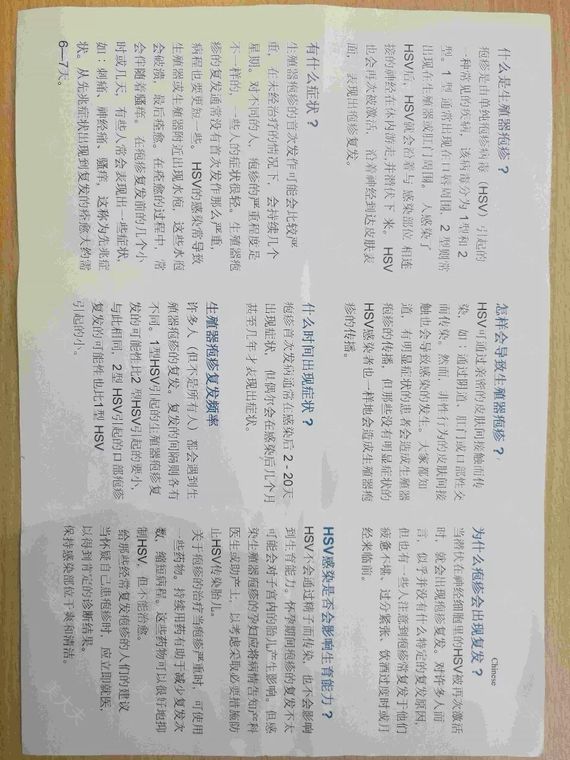 什么是生殖器疱疹？
疱疹是由单纯疱疹病毒（HSV）引起的
一种常见的疾病，该病毒分为 1型和 2
型。1 型 通常出现在口唇周围，2 型则常
出现在生殖器或肛门周围。人感染了
HSV后，HSV就会沿着与 感染部位 相连
接的神经在体内游走,并潜伏下 来。 HSV
也会再次被激活，沿着神经到达皮肤表
面，表现出疱疹复发。
有什么症状？
生殖器疱疹的首次发作可能会比较严
重，在未经治疗的情况下，会持续几个
星期。对不同的人，疱疹的严重程度是
不一样的，一些人的症状很轻。生殖器疱
疹的复发通常没有首次发作那么严重，
病程也要更短一些。 HSV的感染常导致
生殖器或生殖器附近出现水疱，这些水疱
会破溃，最后痊愈，在痊愈的过程中，常
会伴随着骚痒。在疱疹复发前的几个小
时或几天，有些人常会表现出一些症状，
如：刺痛、神经痛、骚痒，这称为先兆症
状。从先兆症状出现到复发的痊愈大约需
6—7天。
怎样会导致生殖器疱疹？
HSV可通过亲密的皮肤间接触而传
染，如：通过阴道、肛门或口部性交
而传染。然而，非性行为的皮肤间接
触也会导致感染的发生。大家都知
道，有明显症状的患者会造成生殖器
疱疹的传播，但那些没有明显症状的
HSV感染者也一样地会造成生殖器疱
疹的传播。
什么时间出现症状？
疱疹首次发病通常在感染后 2 - 20天
出现症状，但偶尔会在感染后几个月
甚至几年才表现出症状。
生殖器疱疹复发频率
许多人（但不是所有人）都会遇到生
殖器疱疹的复发。复发的间隔则各有
不同。1型HSV引起的生殖器疱疹复
发的可能性比2 型HSV引起的要小，
与此相同，2型 HSV引起的口部疱疹
复发的可能性也比1型 HSV
引起的小。
Chinese
为什么疱疹会出现复发？
当潜伏在神经细胞里的HSV被再次激活
时，就会出现疱疹复发。对许多人而
言，似乎并没有什么特定的复发原因，
但也有一些人注意到疱疹常复发于他们
疲惫不堪、过分紧张、饮酒过度时或月
经来临前。
HSV感染是否会影响生育能力？
HSV不会通过精子而传染，也不会影响
到生育能力。怀孕期间疱疹的复发不太
可能会对子宫内的胎儿产生影响。但感
染生殖器疱疹的孕妇应将病情告知产科
医生或助产士，以考虑采取必要措施防
止HSV传染胎儿。
关于疱疹的治疗当疱疹严重时，可使用
一些药物。持续用药有助于减少复发次
数，缩短病程。这些药物可以很好地抑
制HSV，但不能治愈。
给那些经常复发疱疹的人们的建议
当怀疑自己患疱疹时，应立即就医，
以得到肯定的诊断结果。
保持感染部位干爽和清洁。